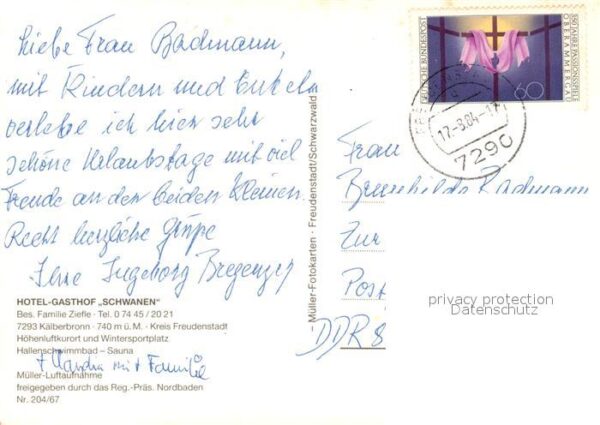 Liebe Frau Badmann,
mit Kindern und Enkeln
verlebe ich hier sehr
schöne Urlaubstage mit viel
Freude an den beiden Kleinen.
Recht herzliche Grüße
Ihre Ingeborg Bregenzer
HOTEL-GASTHOF „SCHWANEN"
Bes. Familie Ziefle · Tel. 0 74 45 / 20 21
7293 Kälberbronn · 740 m ü. M. · Kreis Freudenstadt
Höhenluftkurort und Wintersportplatz
Hallenschwimmbad – Sauna
+ Claudia mit Familie
Müller-Luftaufnahme
freigegeben durch das Reg.-Präs. Nordbaden
Nr. 204/67
– Müller-Fotokarten · Freudenstadt/Schwarzwald
DEUTSCHE BUNDESPOST
350 JAHRE PASSIONSSPIELE
OBERAMMERGAU
60
17.-3.84-17
7290
Frau
Brunhilde Badmann
Zur
Post
DDR 8
privacy protection
Datenschutz